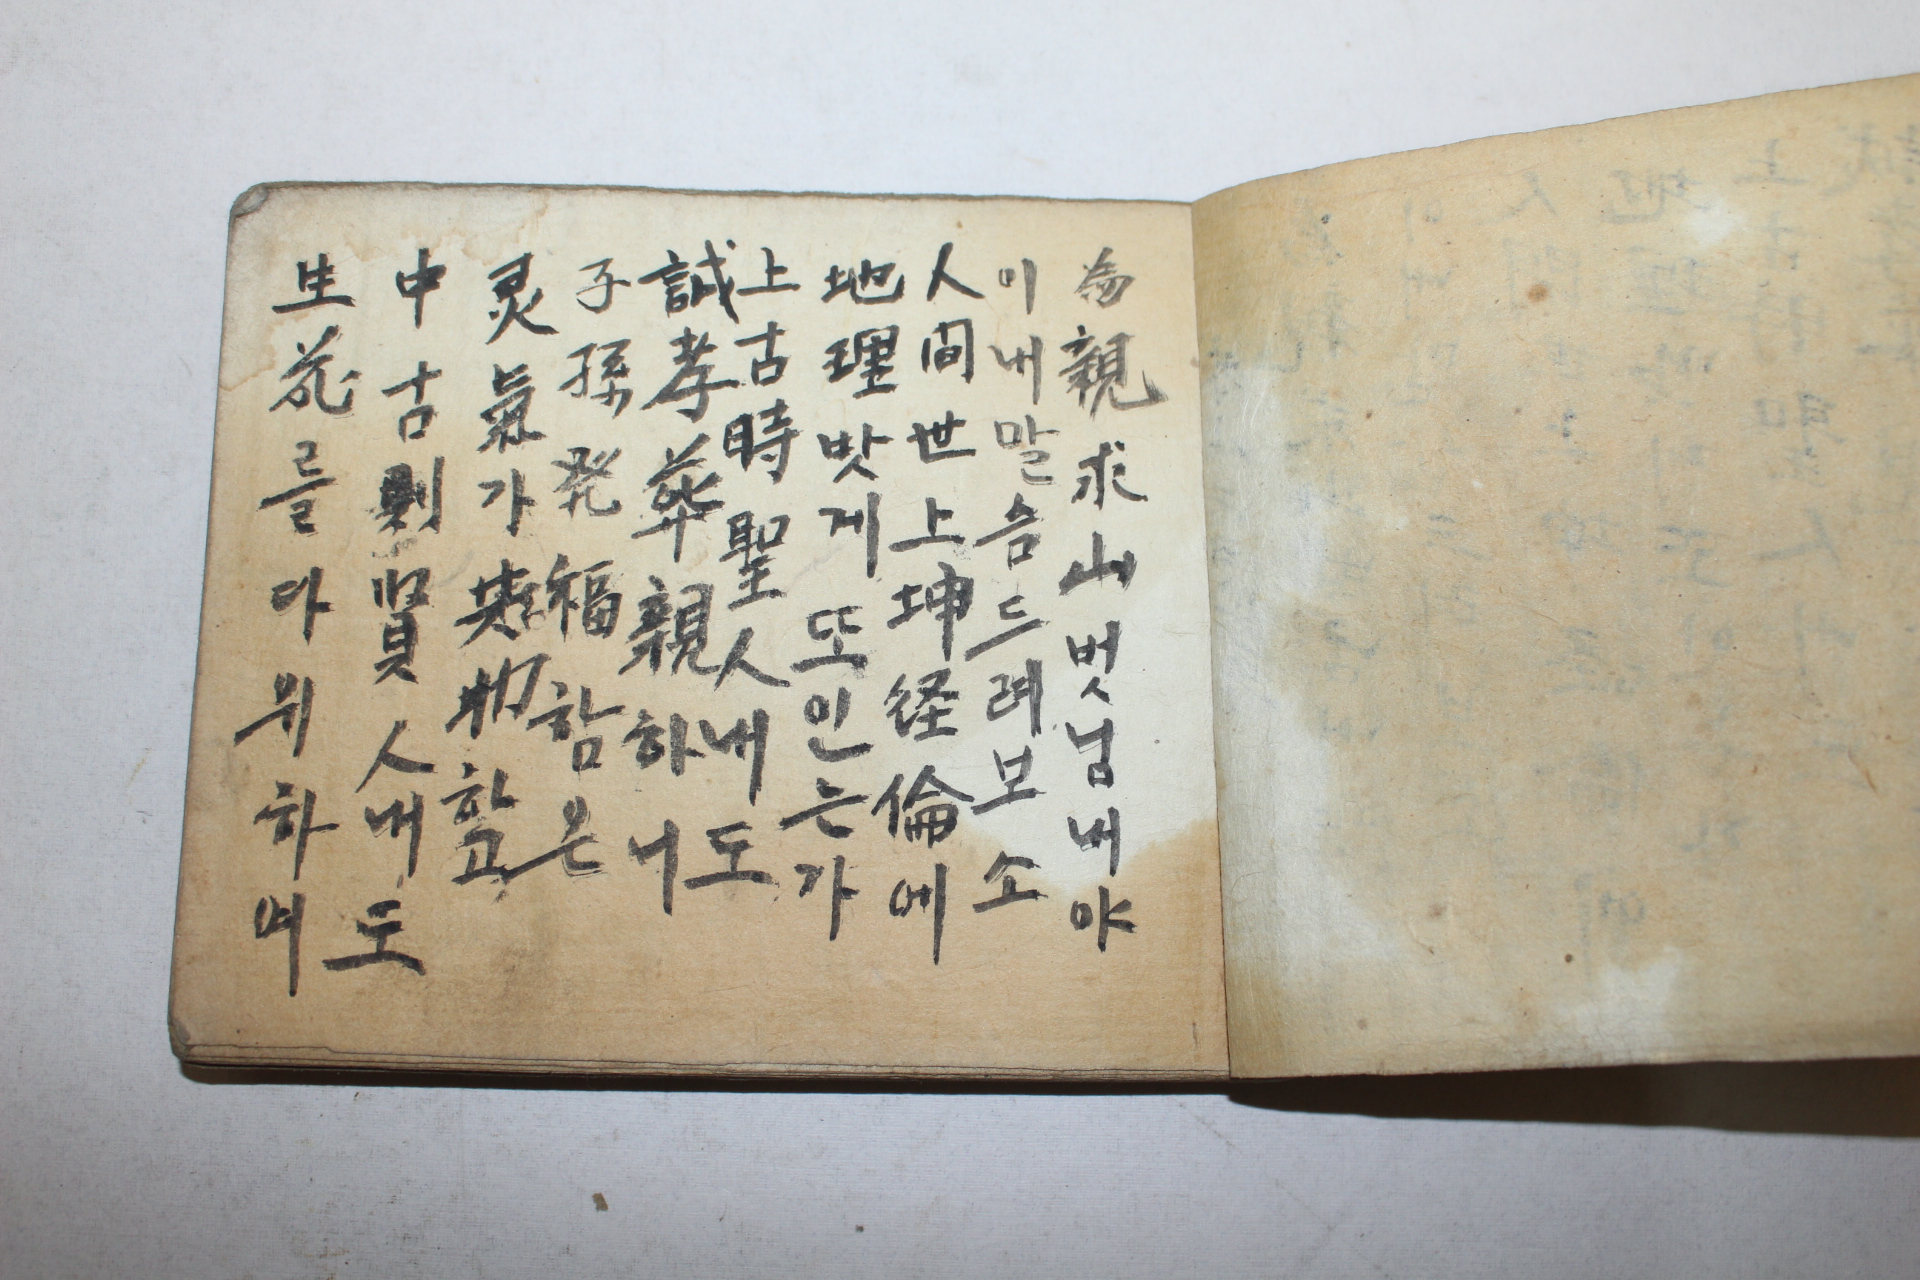 為親求山벗님내야
이내말슴드려보소
人間世上坤経倫에
地理밧게또인는가
上古時聖人내도
誠孝葬親하니
子孫発福함은
灵氣가
中古 賢人내도
生死를다위하여